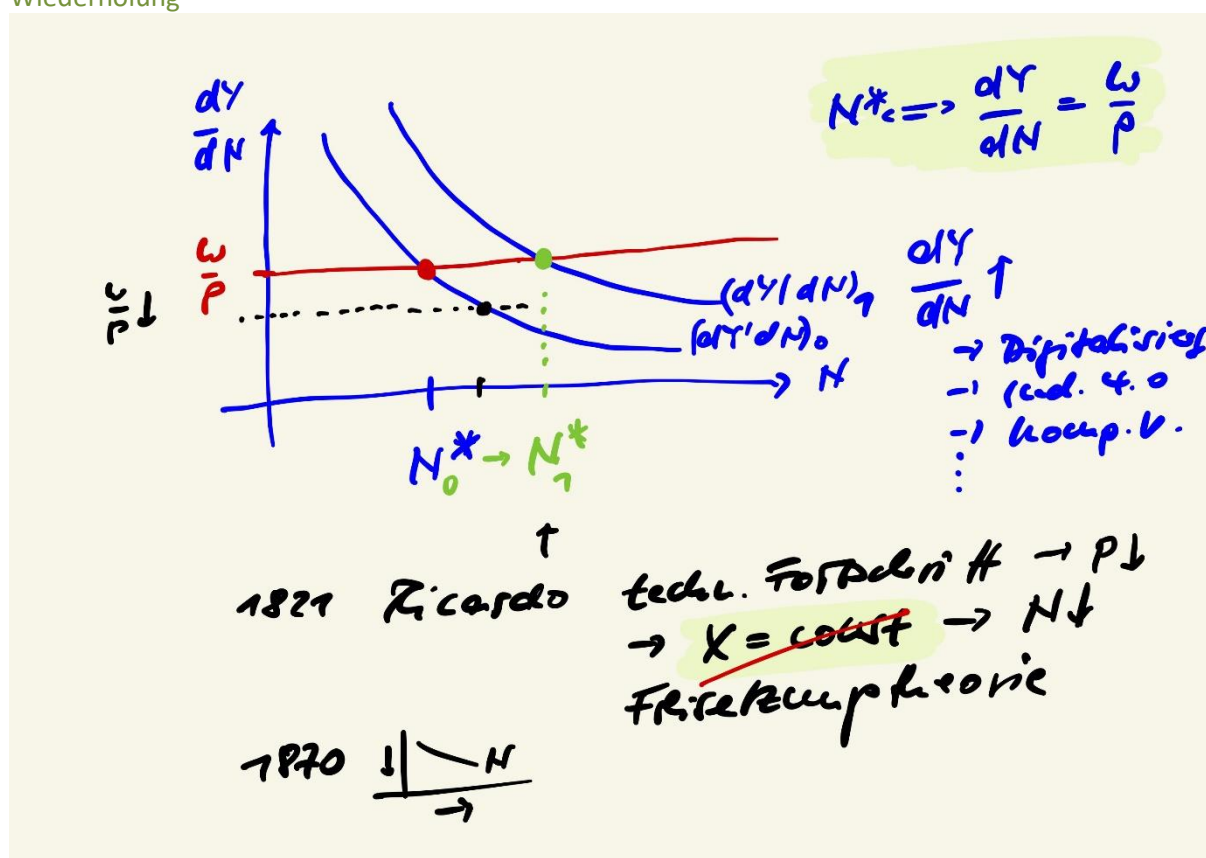 Wiederholung
dY
dN
N* <=> dY/dN = w/p
w/p
w/p ↓
(dY/dN)₁
(dY/dN)₀
N
dY/dN ↑
→ Ind. 4.0
→ komp. V.
⋮
N₀* → N₁*
↑
1821 Ricardo techn. Fortschritt → P↓
→ X = const → N↓
Freisetzungstheorie
1870 ↓ N
→